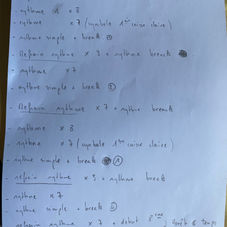 - rythme 1 x 3
- rythme x 7 (symbole 1ère caisse claire)
- rythme simple + break ①
- Refrain rythme x 3 + rythme break
- rythme x 7
- rythme simple + break ②
- Refrain rythme x 7 + rythme break
- rythme x 3
- rythme x 7 (symbole 1ère caisse claire)
- rythme simple + break ①
- refrain rythme x 3 + rythme break
- rythme x 7
- rythme simple + break ②
- refrain rythme x 7 + début temps